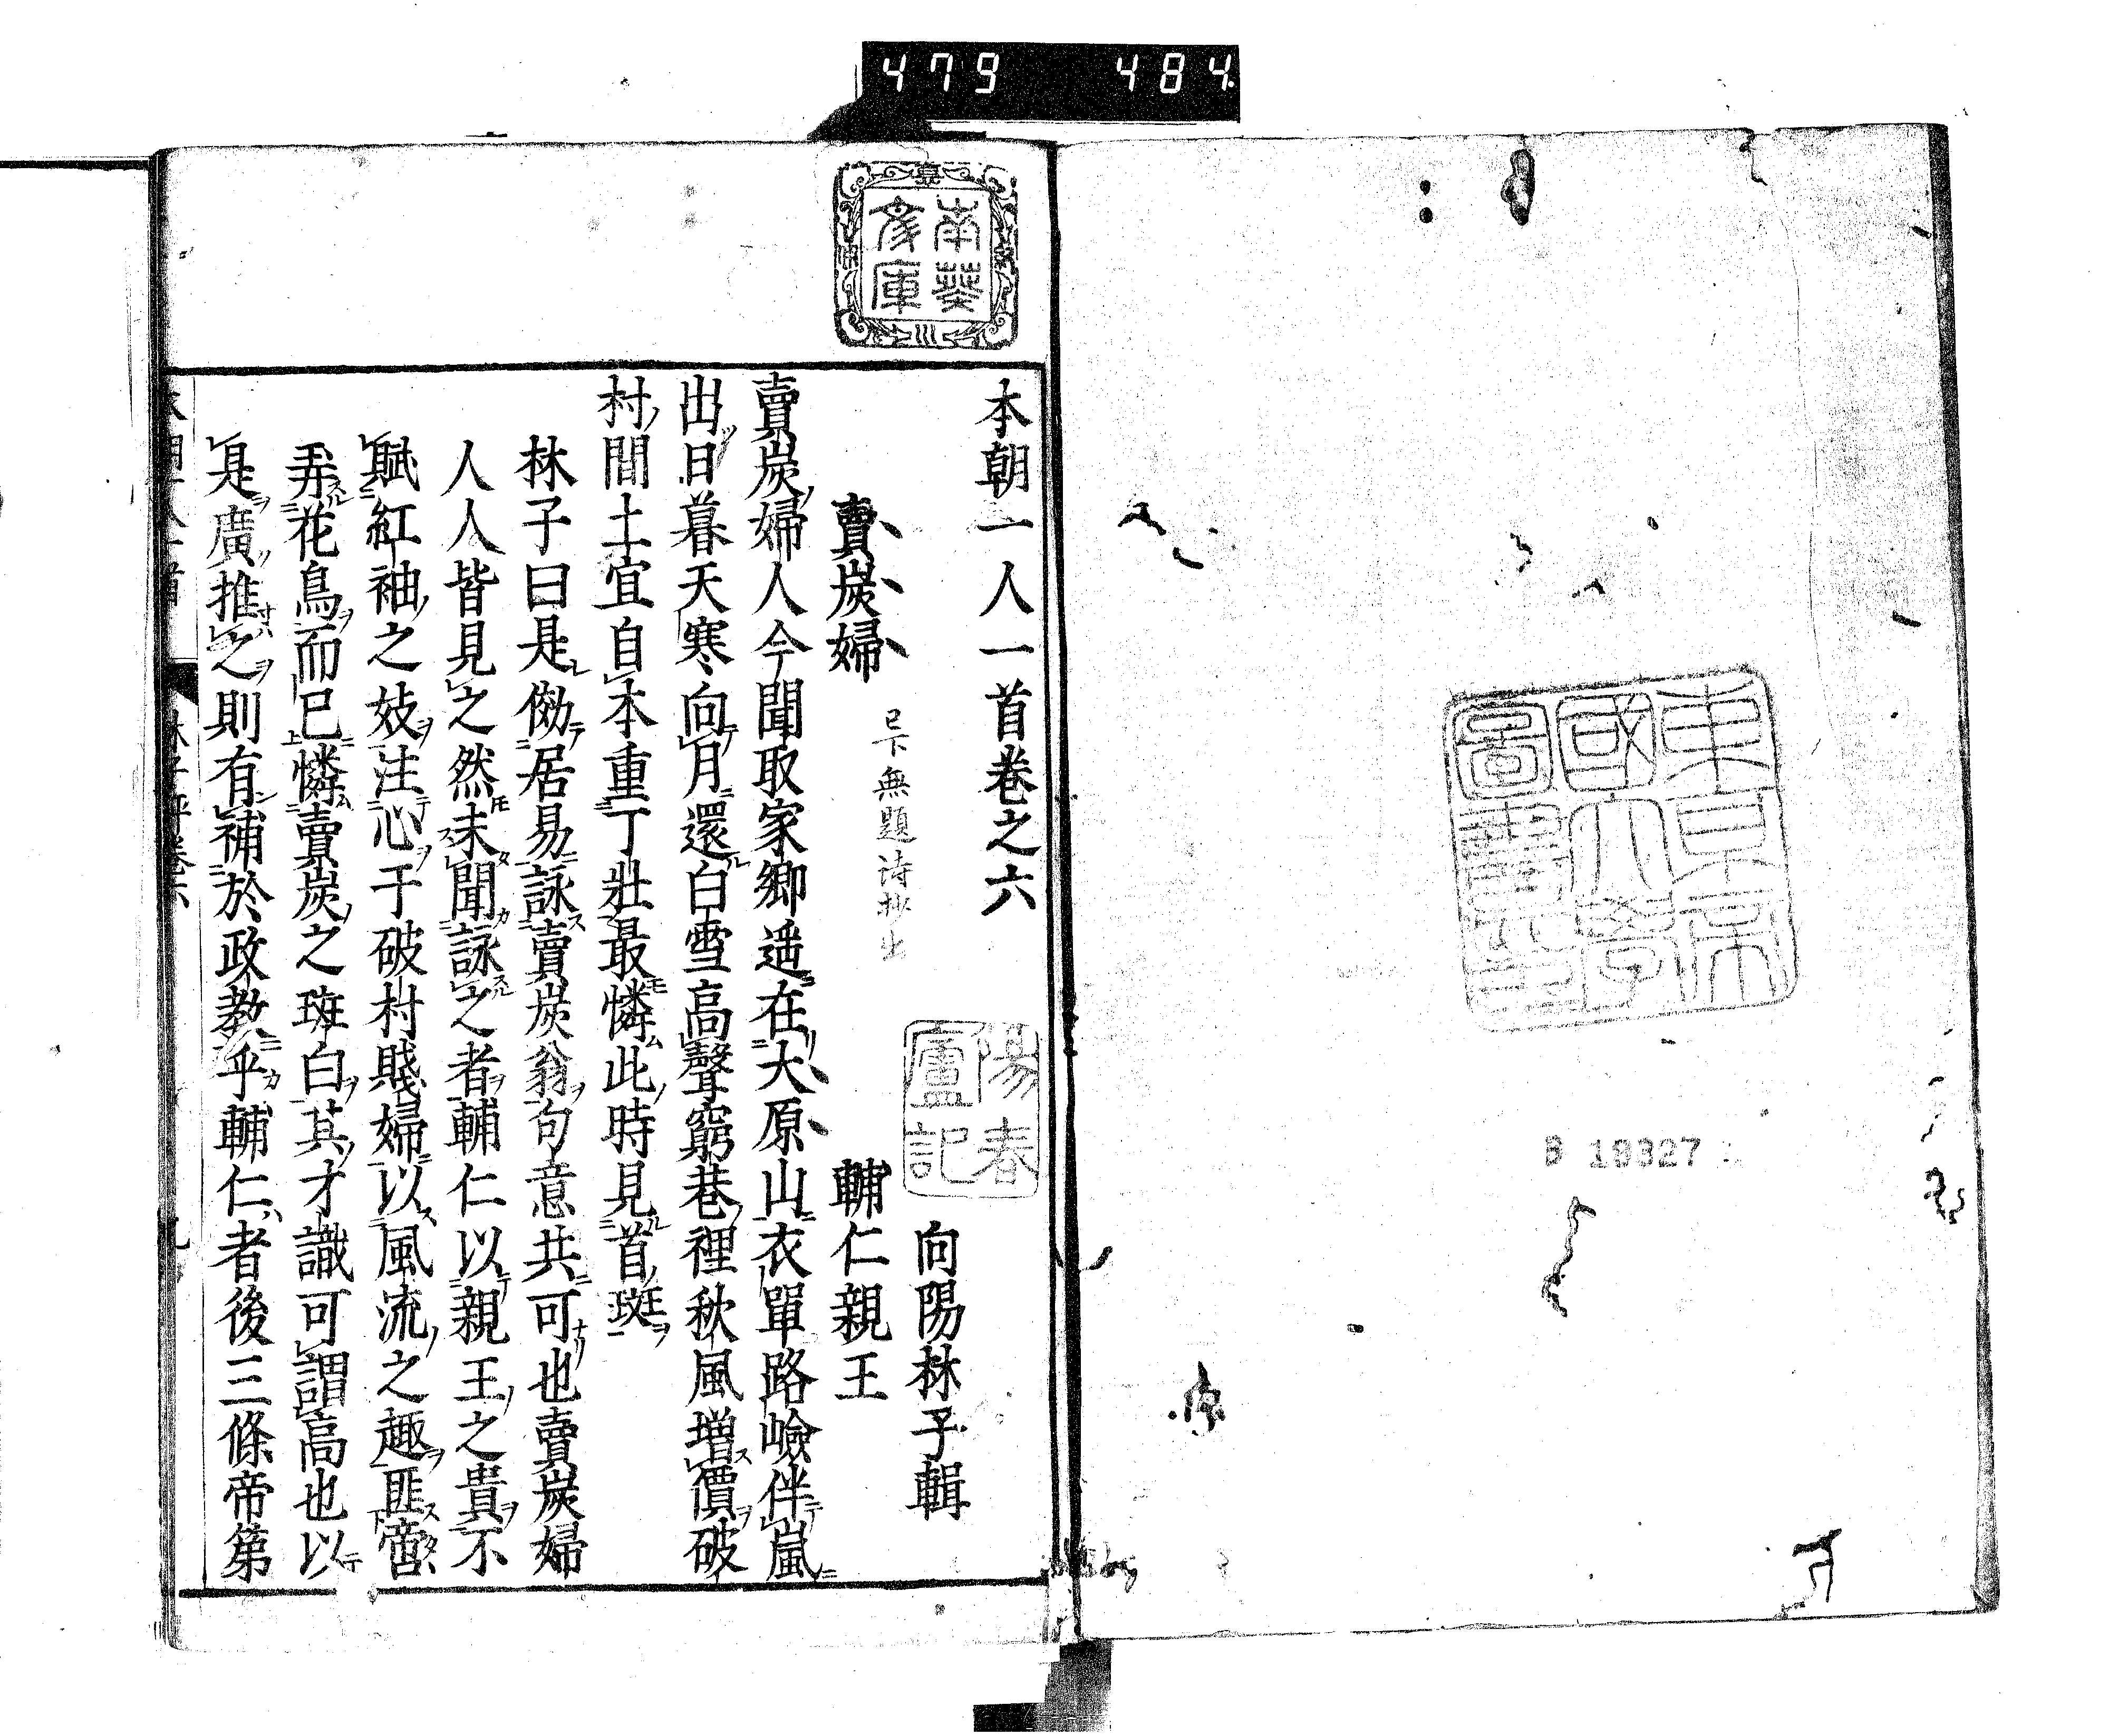 479 484
東京
帝國大學
圖書印
B 19327
南葵
文庫
本朝一人一首卷之六
陽春
廬記
向陽林子輯
賣炭婦 輔仁親王
已下無題诗抄出
賣炭婦人今聞取家鄉遥在大原山衣單路嶮伴嵐
出日暮天寒向月還白雪高聲窮巷裡秋風增價破
村間土宜自本重丁壯最憐此時見首斑
林子曰是傚居易詠賣炭翁句意共可也賣炭婦
人人皆見之然未聞詠之者輔仁以親王之貴不
賦紅袖之妓注心于破村賤婦以風流之趣匪啻
弄花鳥而已憐賣炭之斑白其才識可謂高也以
是廣推之則有補於政教乎輔仁者後三條帝第